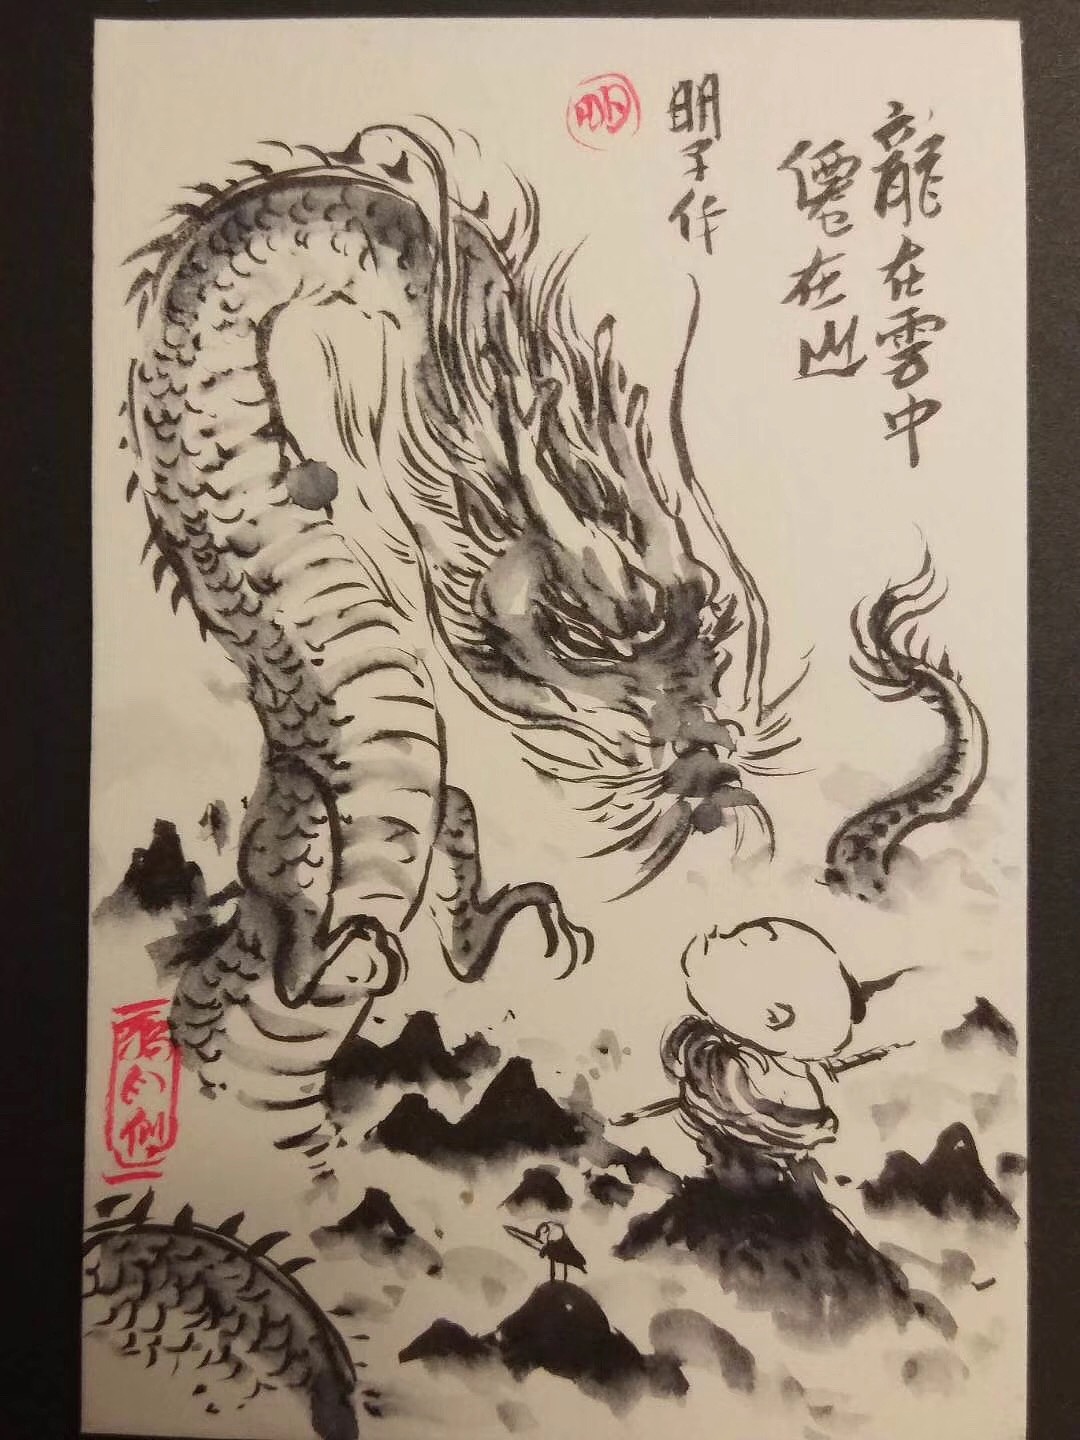 龍在雲中
僊在山
明子作
明